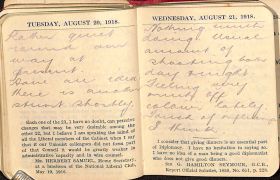 TUESDAY, AUGUST 20, 1918.
Rather quiet
round our
way at
present
have an idea
there is another
stunt shortly.
slash one of the 23, I have no doubt, can perceive
changes that may be very desirable among the
other 22, but I believe I am speaking the mind of
all the Liberal members of the Cabinet when I say
that if our Unionist colleagues did not form part
of that Council it would be greatly weaker in
administrative capacity and in wise counsel.
Mr. HERBERT SAMUEL, Home Secretary,
at a luncheon of the National Liberal Club,
May 19, 1916.
WEDNESDAY, AUGUST 21, 1918.
Nothing
doing usual
amount of
shooting
day &
Feeling very
off
colour lately
Touch of
I think
I consider that giving dinners is an essential part
of diplomacy. I have no hesitation in saying so.
I have no idea of a man being a good diplomatist
who does not give good dinners.
Sir G. HAMILTON SEYMOUR, G.C.B.,
Report Official Salaries, 1850, No. 611, p. 325.